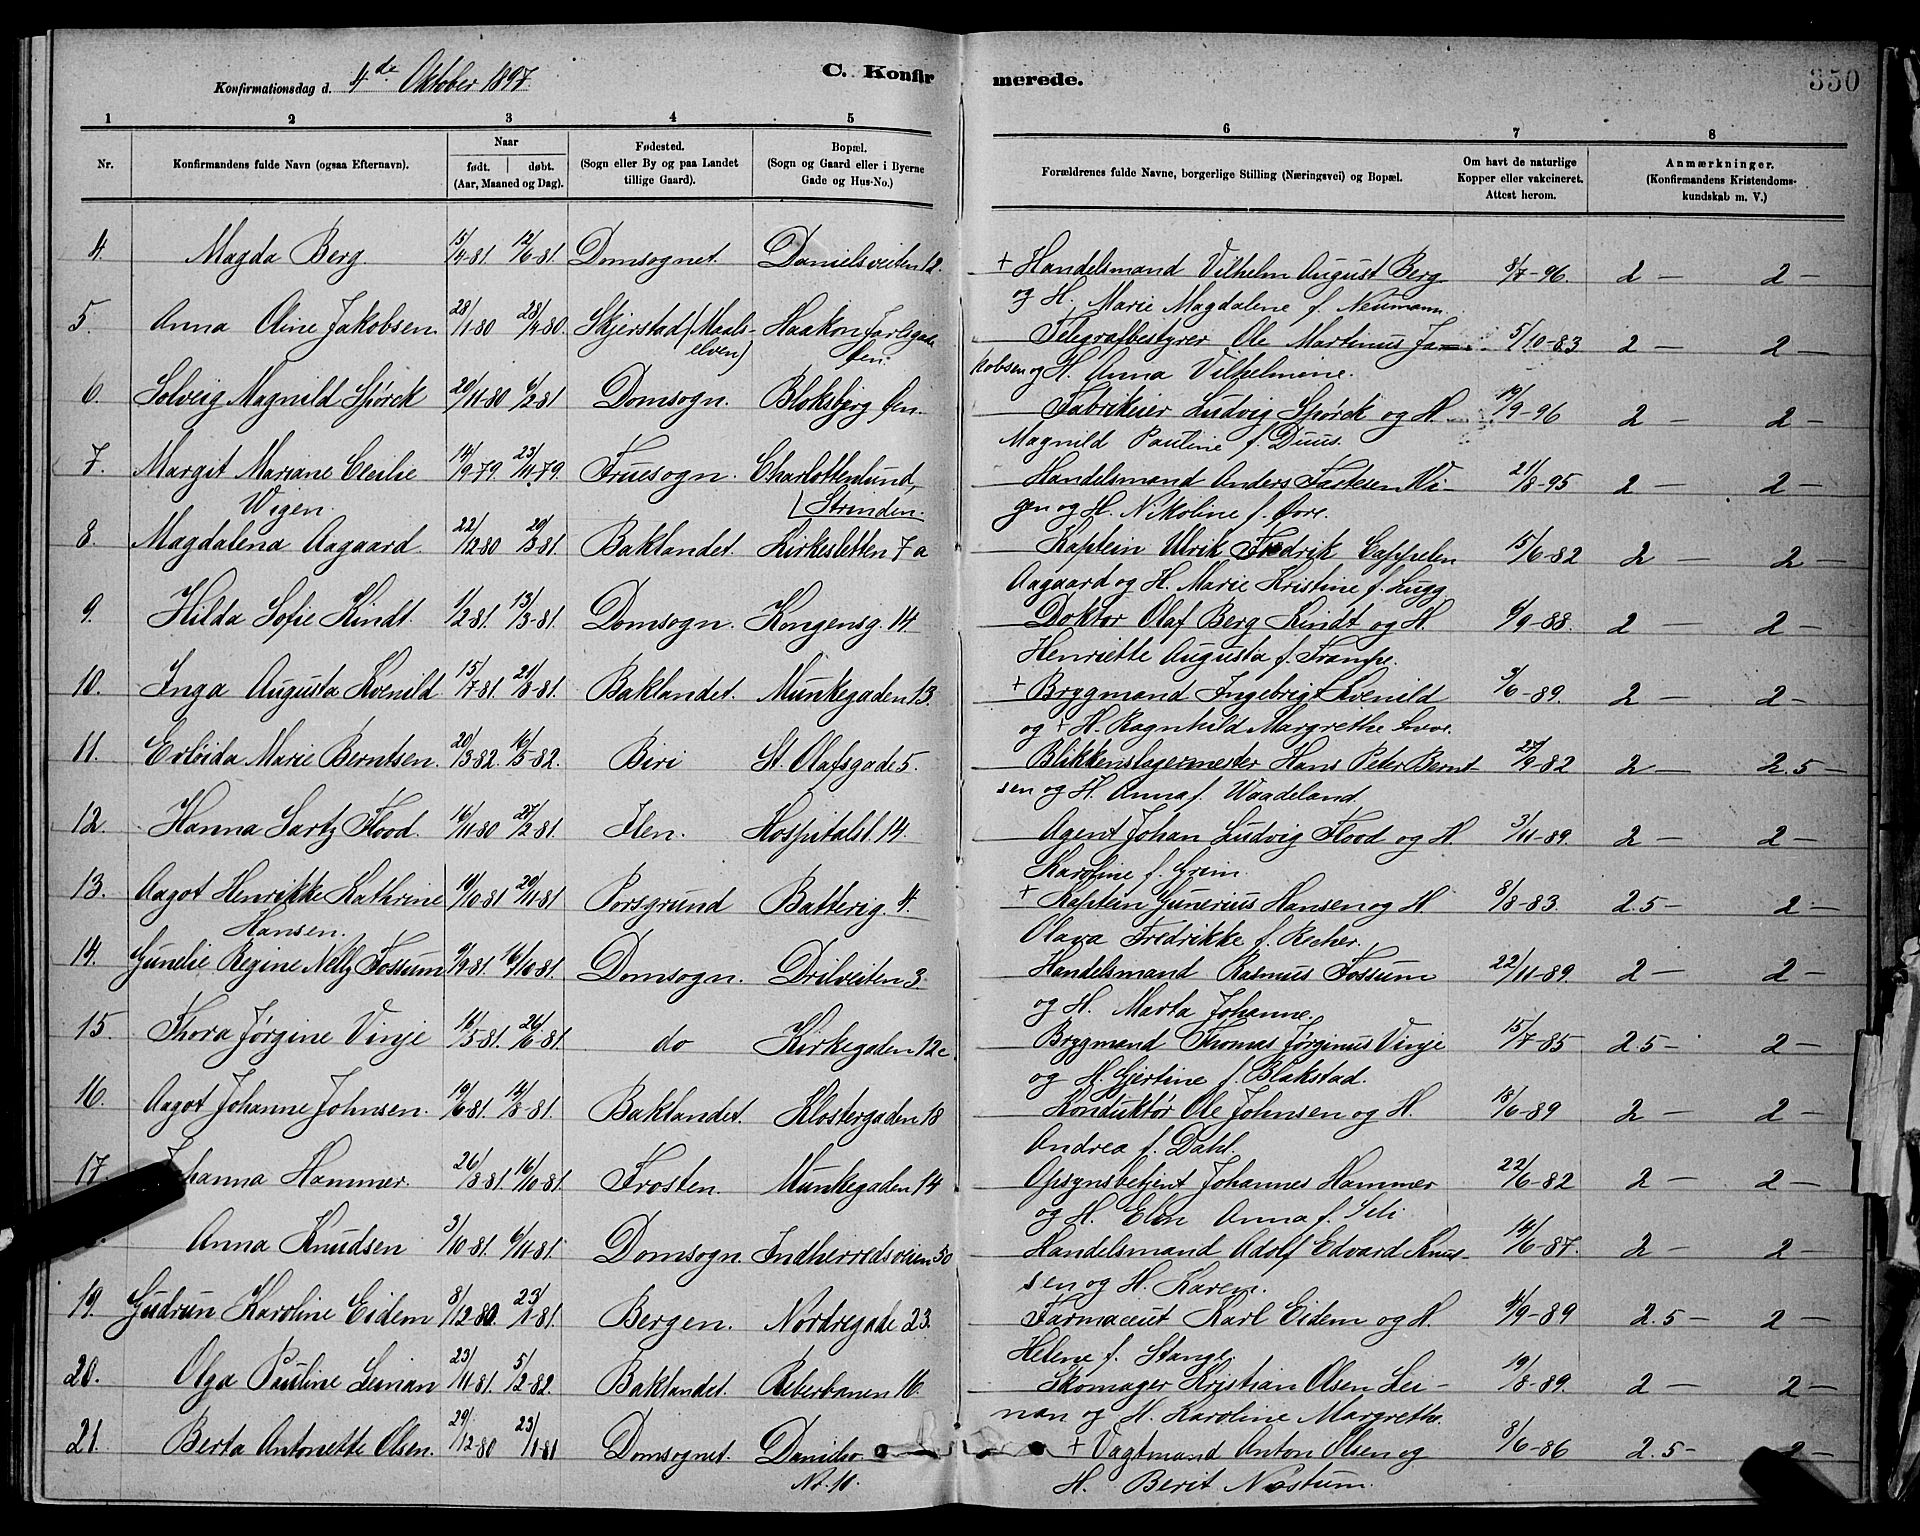 Konfirmationsdag d. 4de Oktober 1897.
C. Konfirmerede.
350
1 2 3 4 5 6 7 8
Nr.
Konfirmandens fulde Navn (ogsaa Efternavn).
Naar
født. døbt.
(Aar, Maaned og Dag).
Fødested.
(Sogn eller By og paa Landet
tillige Gaard).
Bopæl.
(Sogn og Gaard eller i Byerne
Gade og Hus-No.)
Forældrenes fulde Navne, borgerlige Stilling (Næringsvei) og Bopæl.
Om havt de naturlige
Kopper eller vakcineret.
Attest herom.
Anmærkninger.
(Konfirmandens Kristendoms-
kundskab m. V.)
4. Magda Berg. 15/4-81. 12/6-81. Domsognet. Danielsveiten 12. + Handelsmand Vilhelm August Berg 8/7-96. 2 — 2 —
og H. Marie Magdalene f. Neumann.
5. Anna Oline Jakobsen. 28/1-80 28/4-80. Skjerstad (Maals- Haakon Jarlsgade Telegrafbestyrer Ole Martinus Ja- 5/10-83 2 — 2 —
elven) Øen. kobsen og H. Anna Vilhelmine.
6. Solveig Magnild Spørck 20/11-80 6/2-81 Domsogn. Bloksberg Øen. Fabrikeier Ludvig Spørck og H. 19/9-96 2 — 2 —
Magnild Pauline f. Duus.
7. Margit Mariane Cecilie 14/9-79. 23/11-79. Fruesogn. Charlottenlund, Handelsmand Anders Wi- 21/8-95 2 — 2 —
Wigen. Strinden. gen og H. Nikoline f.
8. Magdalena Aagaard. 22/12-80 20/3-81. Baklandet. Kirkesletten 7a Kaptein Ulrik Fredrik Cappelen 15/6-82 2 — 2 —
Aagaard og H. Marie Kristine f. Lugg
9. Hilda Sofie Kindt. 1/2-81. 13/3-81. Domsogn. Kongensg. 14. Doktor Olaf Berg Kindt og H. 6/9-88. 2 — 2 —
Henriette Augusta f.
10. Inga Augusta Kvenild 15/7-81. 21/8-81. Baklandet. Munkegaden 13. + Brygmand Ingebrigt Kvenild 3/6-89. 2 — 2 —
og + H. Ragnhild Margrethe
11. Marie Berntsen. 20/3-82. 16/5-82. Biri St. Olafsgade 5. Blikkenslagermester Hans Peter Bernt- 27/9-82 2 — 2.5 —
sen og H. Anna f. Waadeland.
12. Hanna Lartz Flood. 16/11-80 27/2-81. Ilen. Hospitalsl. 14. Agent Johan Ludvig Flood og H. 3/11-89. 2 — 2 —
Karoline f. Grim.
13. Aagot Henrikke Kathrine 10/10-81 20/11-81 Porsgrund Batterig. 4. + Kaptein Gunerius Hansen og H. 8/8-83. 2.5 — 2 —
Hansen. Olava Fredrikke f. Recher.
14. Gunelie Regine Nelly Fossum 9/9-81. 16/10-81. Domsogn. Drilveiten 3. Handelsmand Rasmus Fossum 22/11-89. 2 — 2 —
og H. Marta Johanne.
15. Thora Jørgine Vinje 16/5-81. 26/6-81. do Kirkegaden 12c. Brygmand Thomas Jørginus Vinje 15/7-85 2.5 — 2 —
og H. Gjertine f. Blakstad.
16. Aagot Johanne Johnsen. 19/6-81. 14/8-81. Baklandet. Klostergaden 18 Konduktør Ole Johnsen og H. 18/6-89 2 — 2 —
Andrea f. Dahl.
17. Johanna Hammer. 26/8-81. 16/10-81. Frosten. Munkegaden 14 Opsynsbetjent Johannes Hammer 22/6-82 2 — 2 —
og H. Elen Anna f. Seli
Anna Knudsen 3/10-81. 6/11-81. Domsogn. Indherredsveien 50 Handelsmand Adolf Edvard Knud- 14/6-87. 2 — 2 —
sen og H. Karen.
19. Gudrun Karoline Eidem 8/12-80. 23/1-81. Bergen. Nordregade 23. Farmaceut Karl Eidem og H. 4/9-89 2.5 — 2 —
Helene f. Stange.
20. Olga Pauline Leinan 23/11-81. 5/2-82. Baklandet. Reberbanen 16. Skomager Kristian Olsen Lei- 19/8-89. 2 — 2 —
nan og H. Karoline Margrethe.
21. Berta Antonette Olsen. 29/12-80 23/1-81 Domsognet. + Vagtmand Anton Olsen og 8/6-86 2.5 - 2 —
No. 10. H. Berit Nøstum.